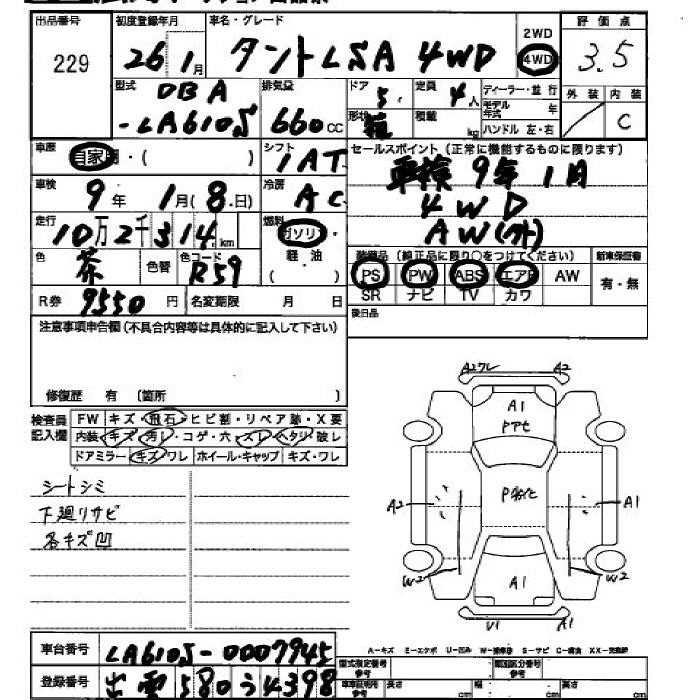 出品番号 初度登録年月 車名・グレード 評価点
229 26年1月 タントLSA 4WD 2WD 4WD 3.5
型式 排気量 ドア 定員 ディーラー・並行 外装 内装
DBA 5 4人 モデル年式 年 / C
-LA610S 660cc 形状 箱 積載 kg ハンドル 左・右
車歴 自家用・( ) シフト IAT セールスポイント(正常に機能するものに限ります)
車検 9年1月(8日) 冷房 AC 車検9年1月
走行 10万2千314km 燃料 ガソリン・ 4WD
軽油 ( ) AW(外)
色 茶 色替 色コード R59 装備品(純正品に限り○をつけてください) 新車保証書
PS PW ABS エアB AW 有・無
R券 9550円 名変期限 月 日 SR ナビ TV カワ
注意事項申告欄(不具合内容等は具体的に記入して下さい) 後日品
修復歴 有 〔箇所 〕
検査員記入欄 FW キズ・飛石・ヒビ割・リペア跡・X要
内装 キズ・汚レ・コゲ・穴・スレ・ヘタリ・破レ
ドアミラー キズ・ワレ ホイール・キャップ キズ・ワレ
シートシミ
下廻りサビ
各キズ凹
A2ワレ A2
A1
A2 A1
W2 A1 W2
V1 A1
A-キズ E-エクボ U-凹ミ W-補修跡 S-サビ C-腐食 XX-交換歴
車台番号 LA610S-0007945
型式指定番号参考 類別区分番号参考
登録番号 出雲580う4398
車車証明用参考 長さ cm 幅 cm 高さ cm